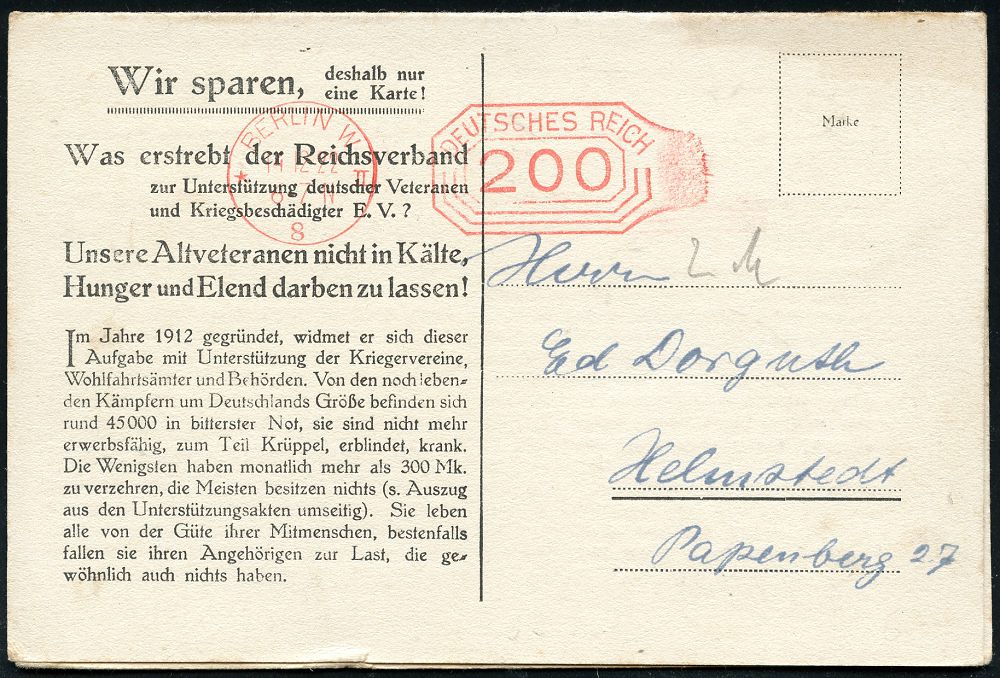 Wir sparen, deshalb nur
eine Karte!
Was erstrebt der Reichsverband
zur Unterstützung deutscher Veteranen
und Kriegsbeschädigter E. V.?
Unsere Altveteranen nicht in Kälte,
Hunger und Elend darben zu lassen!
Im Jahre 1912 gegründet, widmet er sich dieser
Aufgabe mit Unterstützung der Kriegervereine,
Wohlfahrtsämter und Behörden. Von den noch leben-
den Kämpfern um Deutschlands Größe befinden sich
rund 45000 in bitterster Not, sie sind nicht mehr
erwerbsfähig, zum Teil Krüppel, erblindet, krank.
Die Wenigsten haben monatlich mehr als 300 Mk.
zu verzehren, die Meisten besitzen nichts (s. Auszug
aus den Unterstützungsakten umseitig). Sie leben
alle von der Güte ihrer Mitmenschen, bestenfalls
fallen sie ihren Angehörigen zur Last, die ge-
wöhnlich auch nichts haben.
BERLIN W
14 12 22
6-7 N
8
DEUTSCHES REICH
200
Marke
Herrn
Ed Dorguth
Helmstedt
Papenberg 27